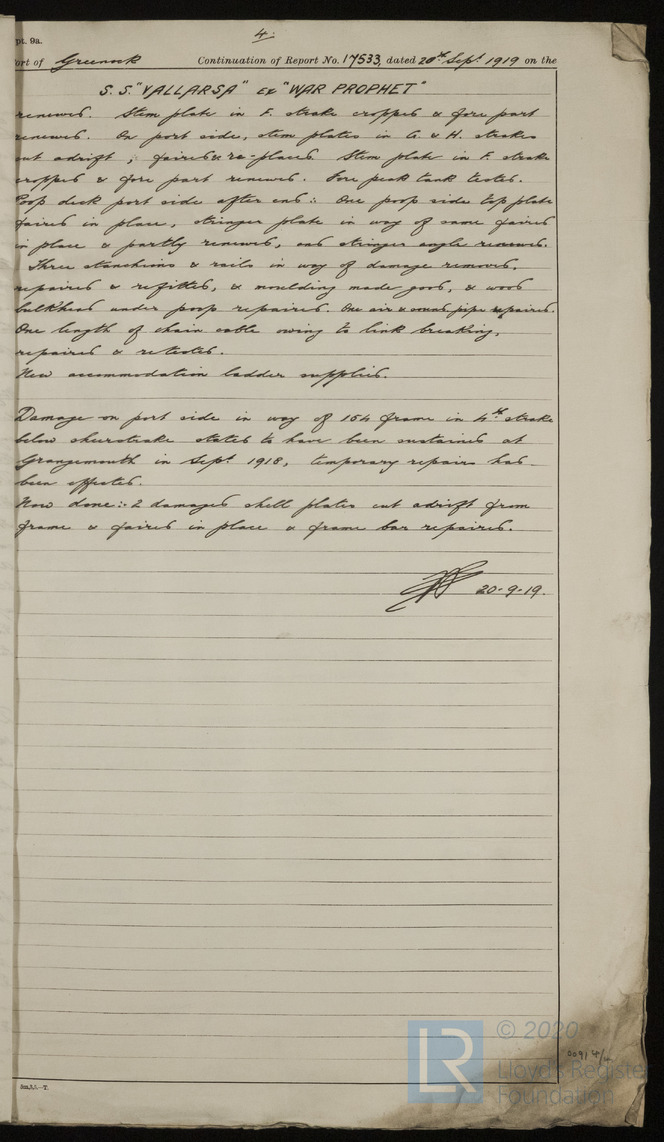 4.
pt. 9a.
ort of Greenock Continuation of Report No. 17533, dated 20th Sept. 1919 on the
S.S. "VALLARSA" Ex "WAR PROPHET"
renewed. Stem plate in F. strake cropped & fore part
renewed. On port side, stem plates in G. & H. strakes
cut adrift, faired & re-placed. Stem plate in F. strake
cropped & fore part renewed. Fore peak tank tested.
Poop deck port side after end: One poop side top plate
faired in place, stringer plate in way of same faired
in place & partly renewed, and stringer angle renewed.
Three stanchions & rails in way of damage removed,
repaired & refitted, & moulding made good, & wood
bulkhead under poop repaired. One air & sound pipe repaired.
One length of chain cable owing to link breaking,
repaired & retested.
New accommodation ladder supplied.
Damage on port side in way of 154 frame in 4th strake
below sheerstrake stated to have been sustained at
Grangemouth in Sept. 1918, temporary repairs had
been effected.
Now done:- 2 damaged shell plates cut adrift from
frame & faired in place & frame bar repaired.
20-9-19.
© 2020
LR
Lloyd's Register
Foundation